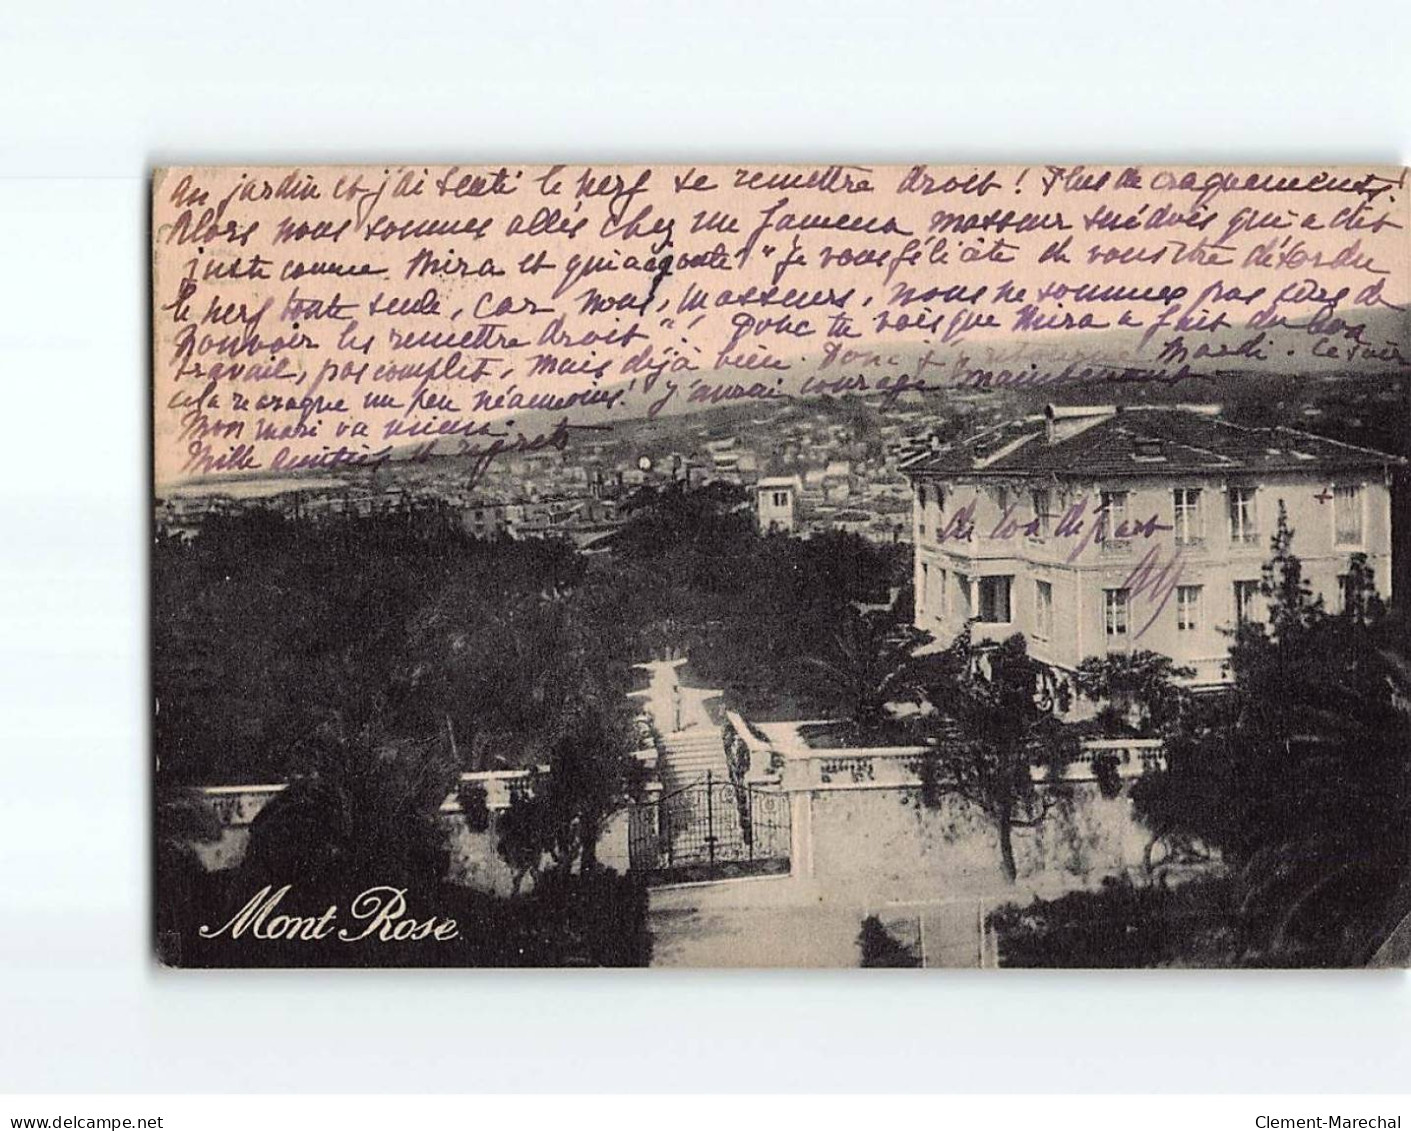 au jardin et j'ai senti le nerf se remettre droit! Plus de craquements!
Alors nous sommes allés chez un fameux masseur suédois qui a dit
juste comme Mira et qui a ajouté: "Je vous félicite de vous être détordu
le nerf toute seule, car nous, masseurs, nous ne sommes pas sûrs de
pouvoir les remettre droit"! Donc tu vois que Mira a fait du bon
travail, pas complet, mais déjà bien. Donc Mardi. Ce soir
cela recraque un peu néanmoins! J'aurai courage maintenant
Mon mari va mieux.
Mille amitiés et regrets
de ton départ
Mont Rose
www.delcampe.net
Clement-Marechal